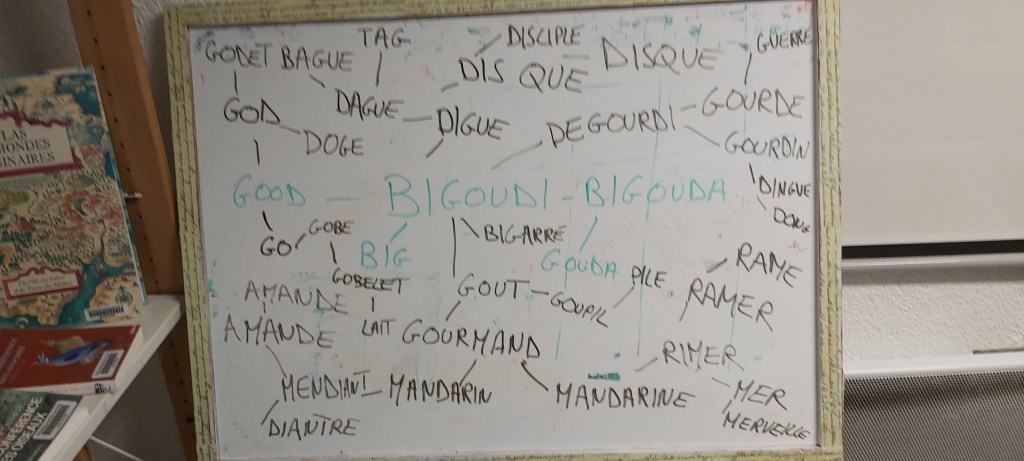 TAG
DISCIPLE
GUERRE
GODET BAGUE
DIS QUE
DISQUE
GOD
DAGUE
DIGUE
DEGOURDI
GOURDE
DOGE
GOURDIN
GOOD
BIGOUDI - BIGOUDA
DINGUE
GO
GOBE
BIG
BIGARRE
GOUDA
GOBELET
GOUT
GOUPIL
PILE
RAME
RAMER
AMANDE
AMANDE
LAIT
GOURMAND
RIMER
MENDIANT
MANDARIN
MANDARINE
MER
DIANTRE
LAS
MONDES